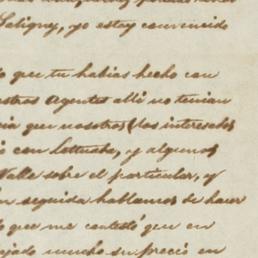 Saligny, yo estoy convencido
que tu habias hecho con
Agentes alli no tenian
que nosotros (los interesados
con Lettuche, y algunos
Valle sobre el particular, y
en seguida hablamos de hacer
que me contestó que en
mucho su precio en